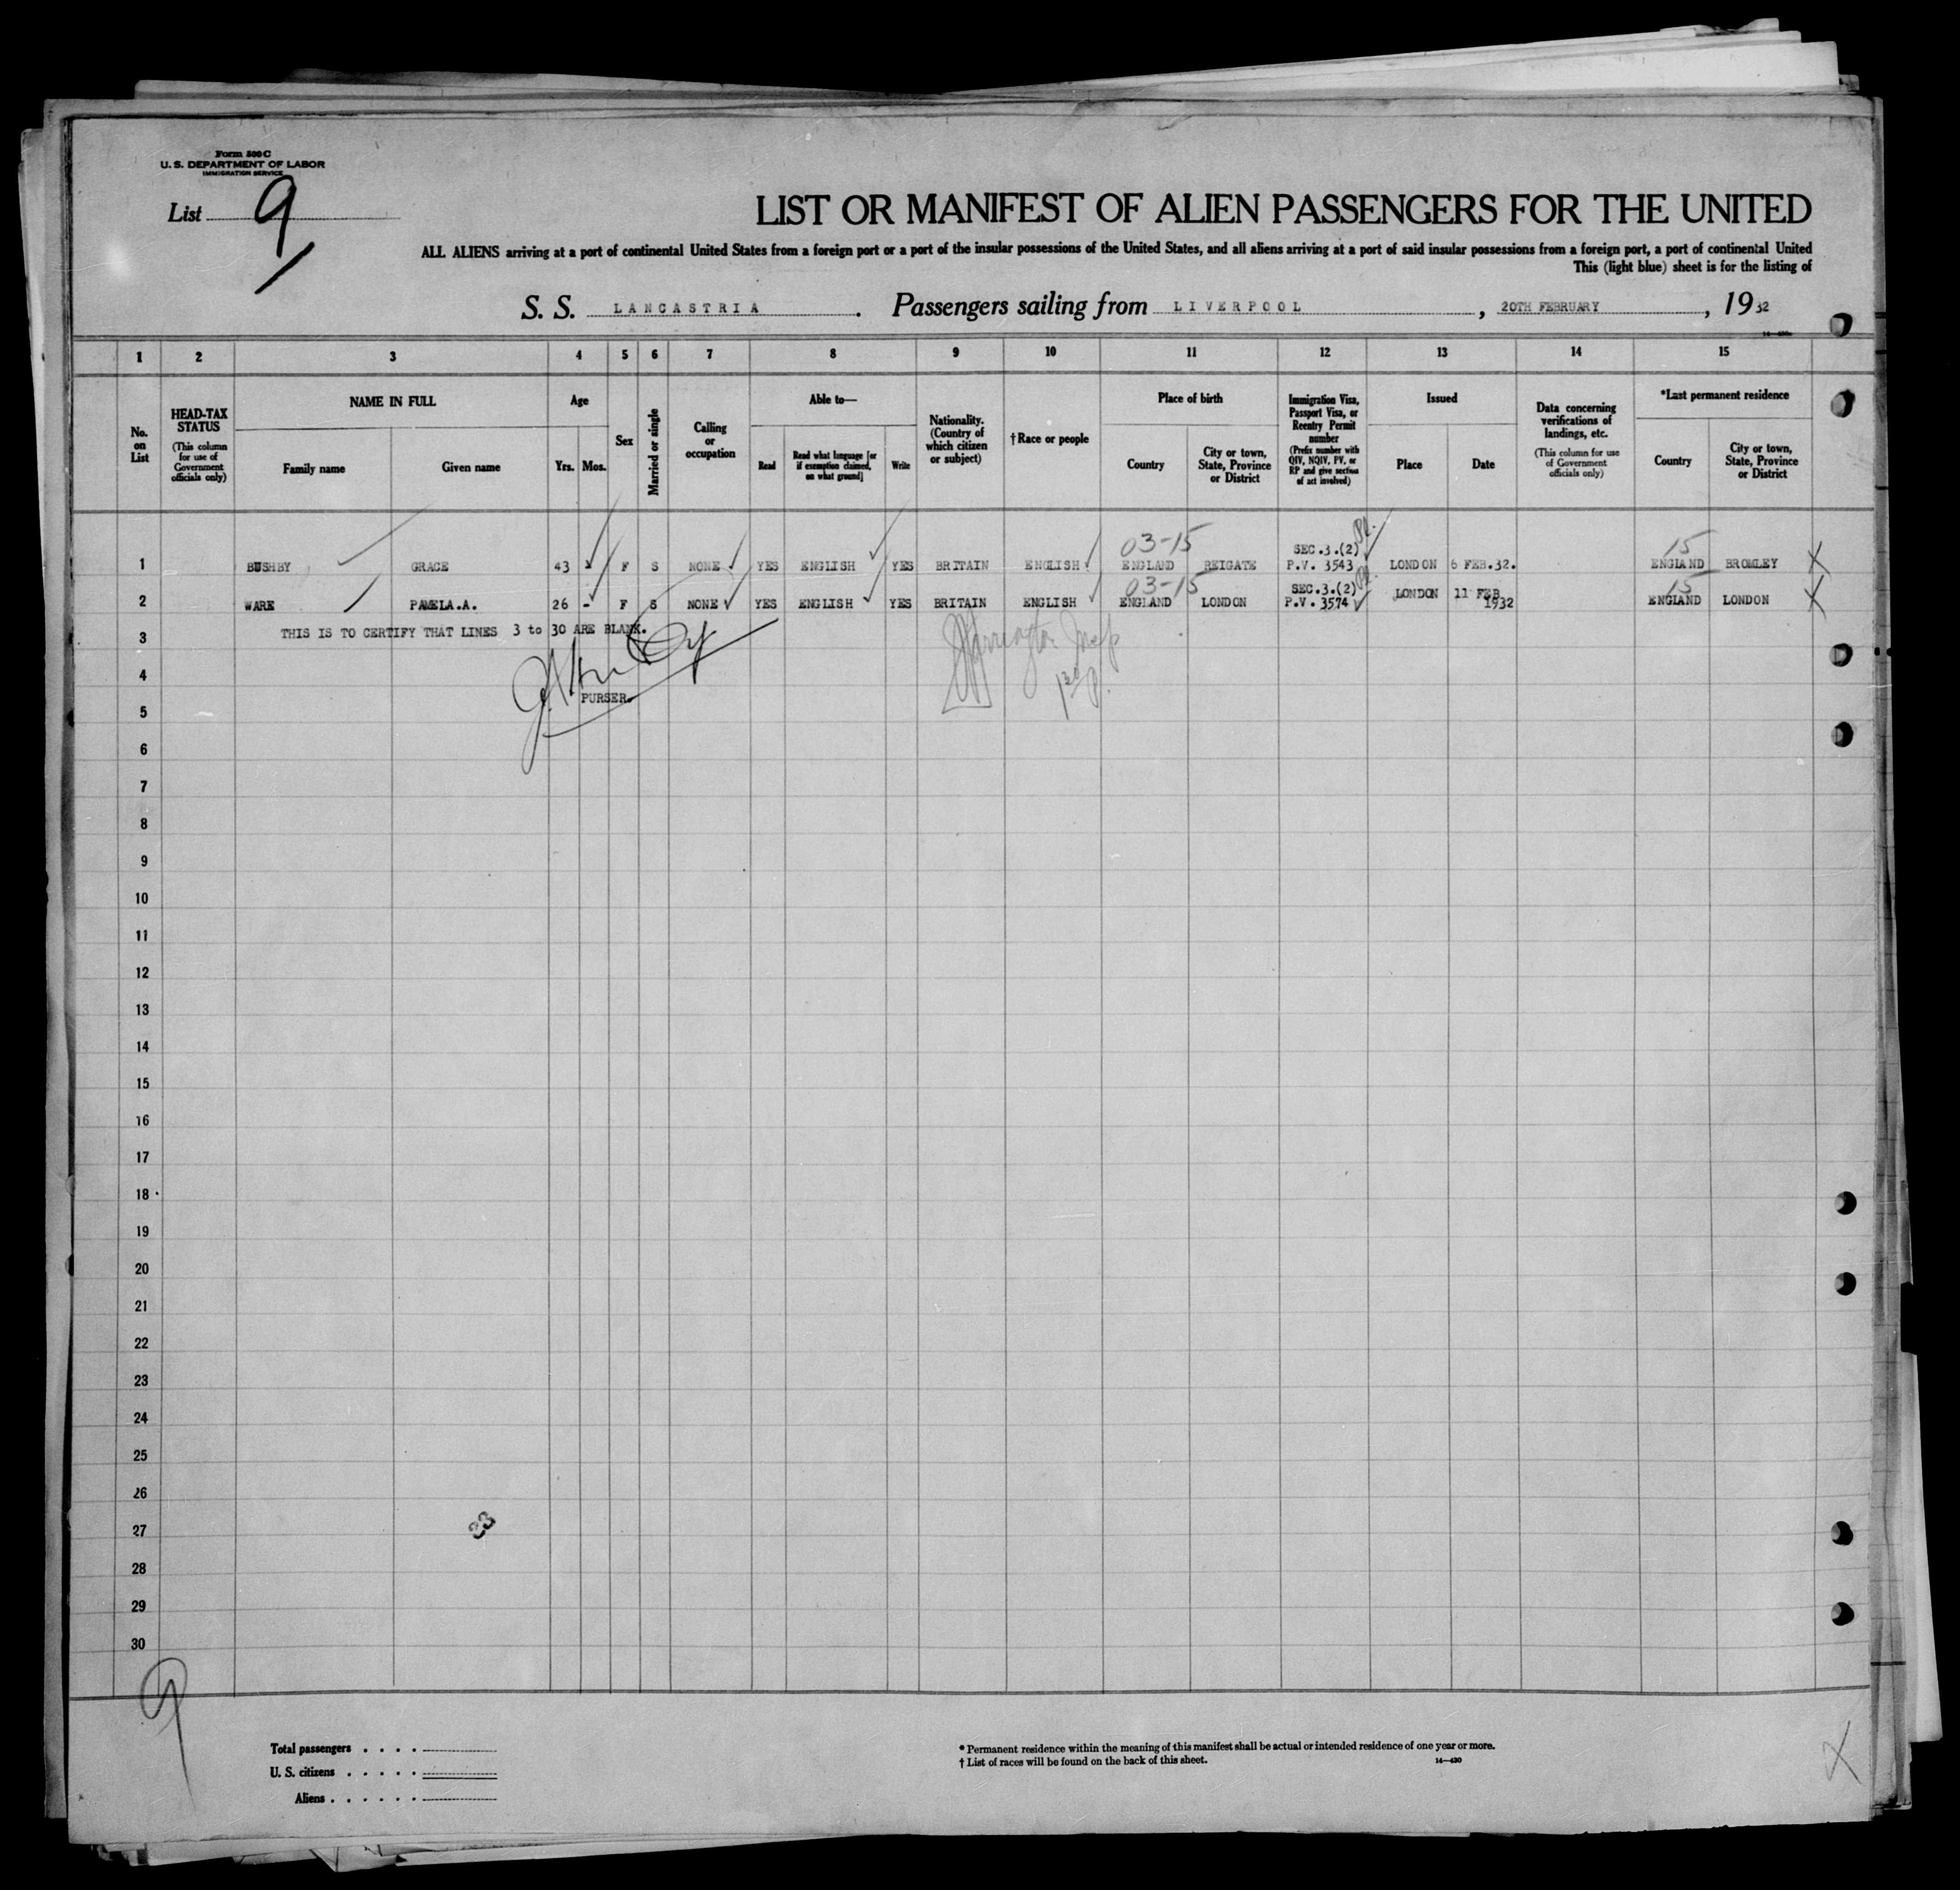 Form 500 C
U. S. DEPARTMENT OF LABOR
IMMIGRATION SERVICE
List 9
LIST OR MANIFEST OF ALIEN PASSENGERS FOR THE UNITED
ALL ALIENS arriving at a port of continental United States from a foreign port or a port of the insular possessions of the United States, and all aliens arriving at a port of said insular possessions from a foreign port, a port of continental United
This (light blue) sheet is for the listing of
S. S. LANCASTRIA. Passengers sailing from LIVERPOOL, 20TH FEBRUARY, 1932
1 2 3 4 5 6 7 8 9 10 11 12 13 14 15
No. on List
HEAD-TAX STATUS (This column for use of Government officials only)
NAME IN FULL
Family name
Given name
Age
Yrs. Mos.
Sex
Married or single
Calling or occupation
Able to—
Read
Read what language [or if exemption claimed, on what ground]
Write
Nationality. (Country of which citizen or subject)
†Race or people
Place of birth
Country
City or town, State, Province or District
Immigration Visa, Passport Visa, or Reentry Permit number (Prefix number with QIV, NQIV, PV, or RP and give section of act involved)
Issued
Place
Date
Data concerning verifications of landings, etc. (This column for use of Government officials only)
*Last permanent residence
Country
City or town, State, Province or District
03-15 SEC.3.(2) 15
1 BUSHBY GRACE 43 - F S NONE YES ENGLISH YES BRITAIN ENGLISH ENGLAND REIGATE P.V. 3543 LONDON 6 FEB.32. ENGLAND BROMLEY X
03-15 SEC.3.(2) 15
2 WARE PAMELA.A. 26 - F S NONE YES ENGLISH YES BRITAIN ENGLISH ENGLAND LONDON P.V. 3574 LONDON 11 FEB 1932 ENGLAND LONDON X
3 THIS IS TO CERTIFY THAT LINES 3 to 30 ARE BLANK.
4 PURSER.
5
6
7
8
9
10
11
12
13
14
15
16
17
18
19
20
21
22
23
24
25
26
27 33
28
29
30
9
Total passengers . . . .
U. S. citizens . . . . .
Aliens . . . . . .
* Permanent residence within the meaning of this manifest shall be actual or intended residence of one year or more.
† List of races will be found on the back of this sheet. 14—430
X